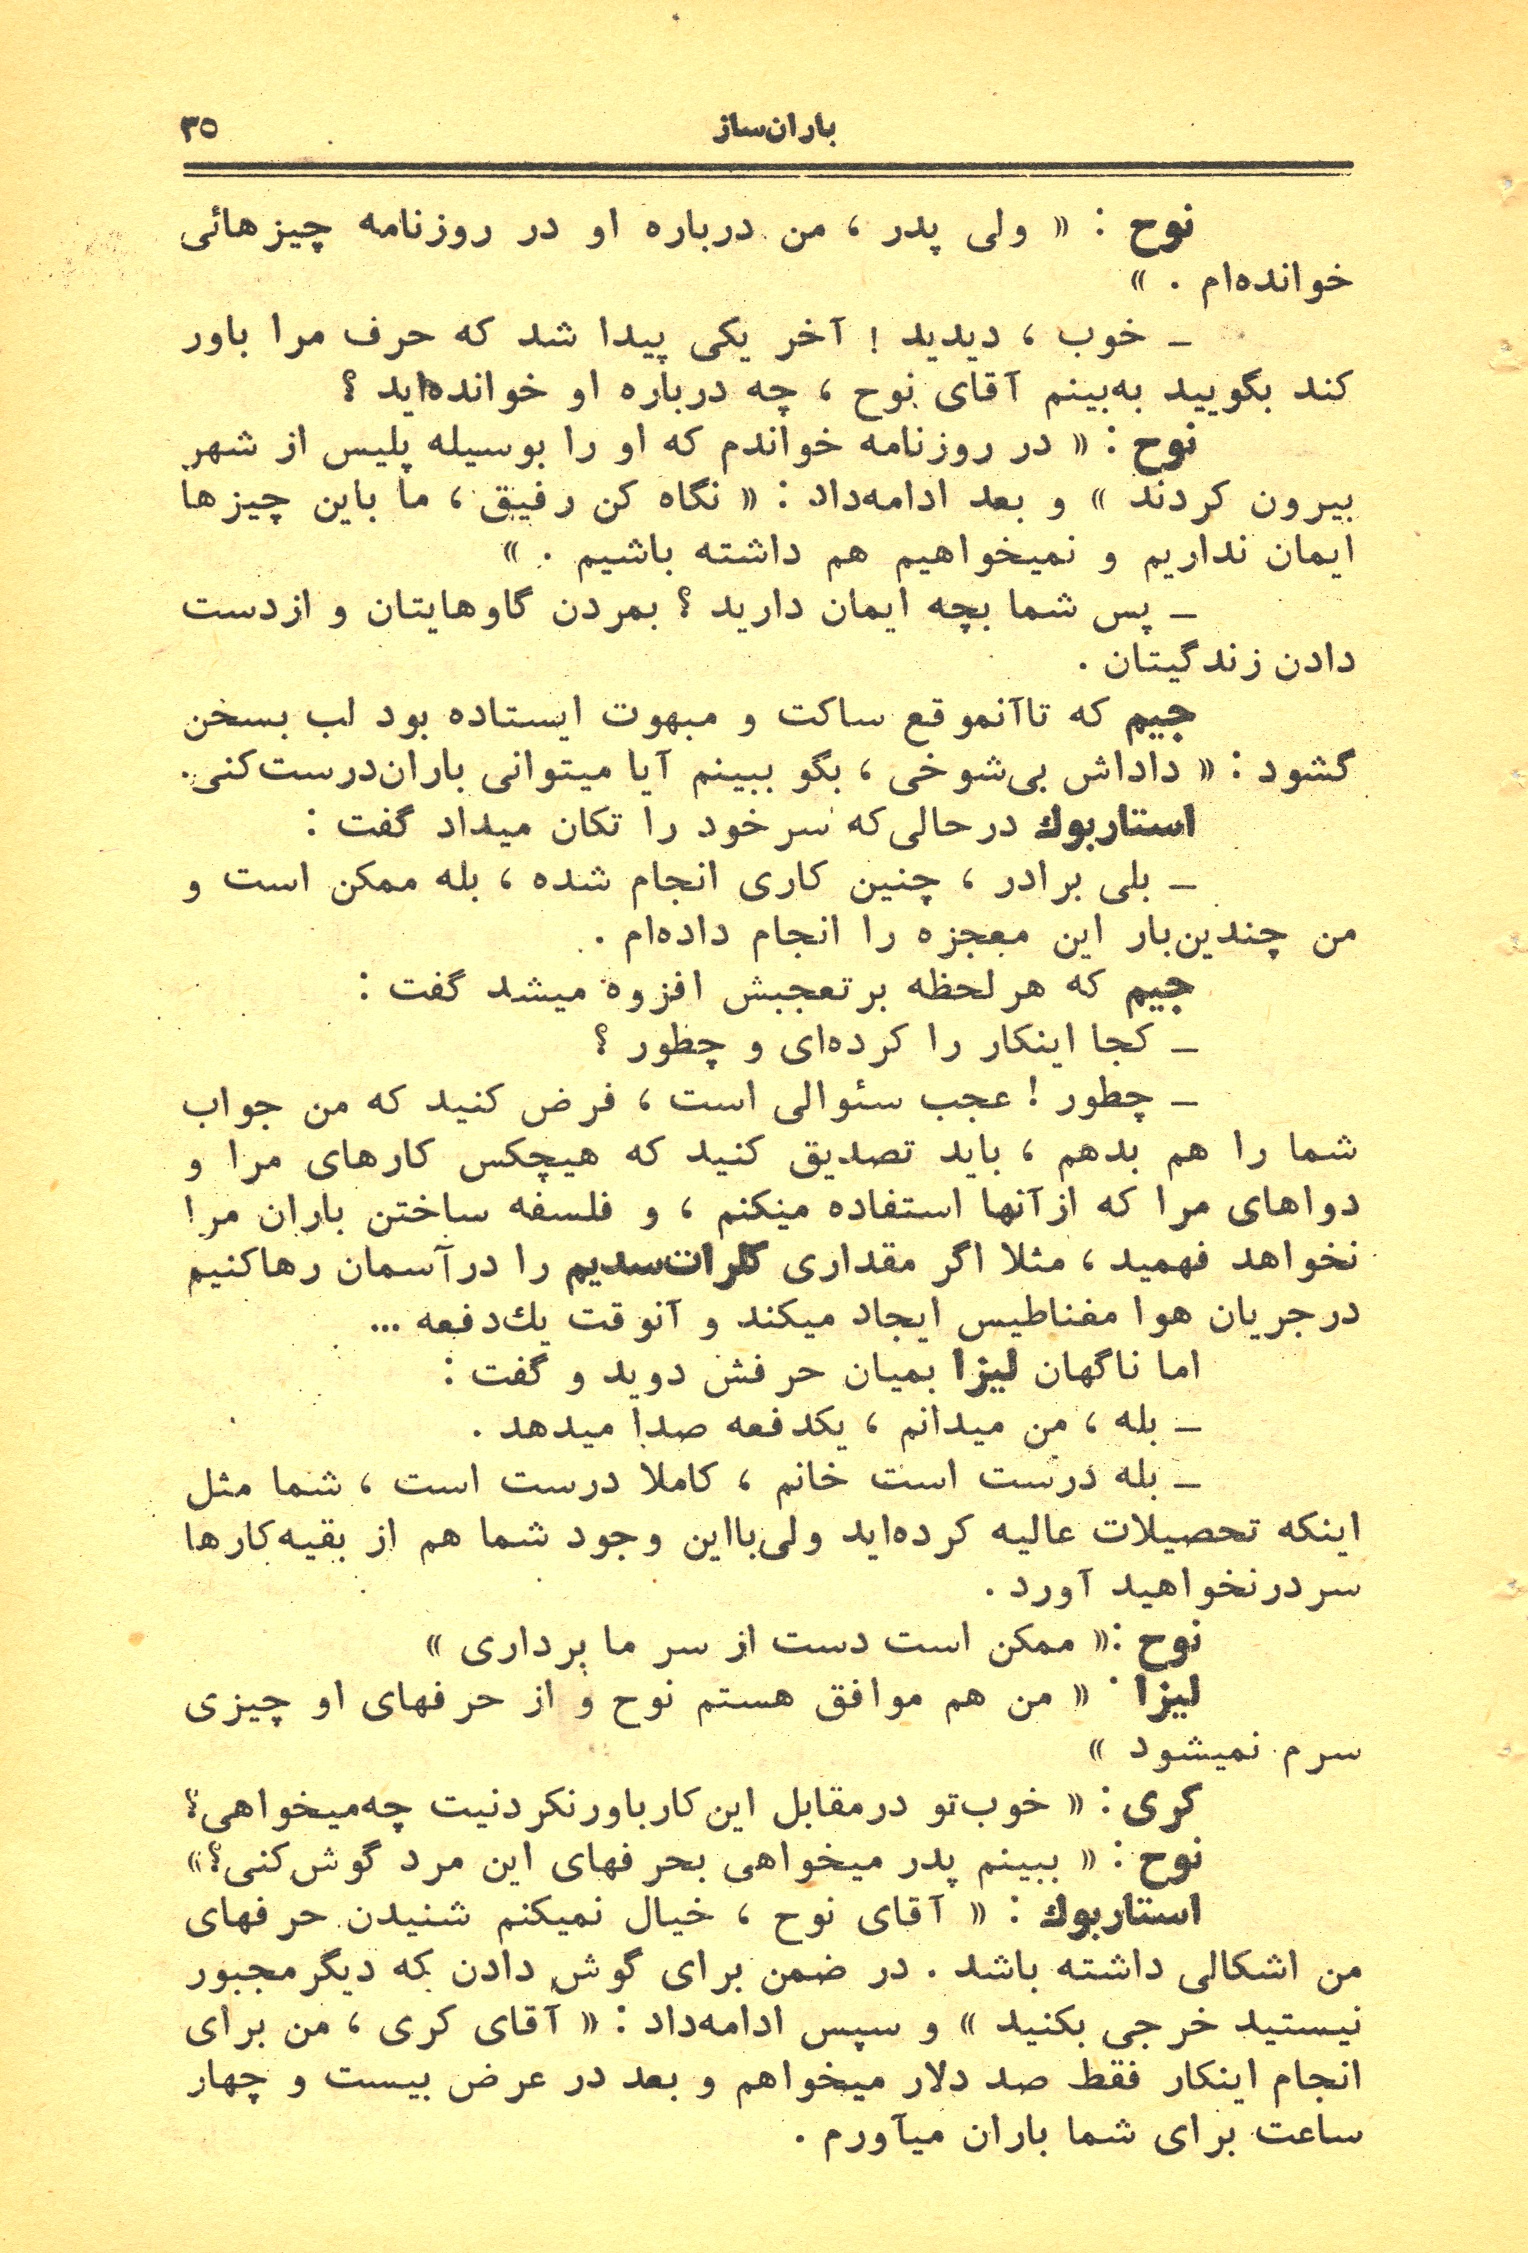 باران‌ساز ۳۵
نوح : « ولی پدر ، من درباره او در روزنامه چیزهائی
خوانده‌ام . »
ـ خوب ، دیدید ! آخر یکی پیدا شد که حرف مرا باور
کند بگویید به‌بینم آقای نوح ، چه درباره او خوانده‌اید ؟
نوح : « در روزنامه خواندم که او را بوسیله پلیس از شهر
بیرون کردند » و بعد ادامه‌داد : « نگاه کن رفیق ، ما باین چیزها
ایمان نداریم و نمیخواهیم هم داشته باشیم . »
ـ پس شما بچه ایمان دارید ؟ بمردن گاوهایتان و ازدست
دادن زندگیتان .
جیم که تاآنموقع ساکت و مبهوت ایستاده بود لب بسخن
گشود : « داداش بی‌شوخی ، بگو ببینم آیا میتوانی باران‌درست‌کنی .
استاربوك درحالی‌که سرخود را تکان میداد گفت :
ـ بلی برادر ، چنین کاری انجام شده ، بله ممکن است و
من چندین‌بار این معجزه را انجام داده‌ام .
جیم که هرلحظه برتعجبش افزوه میشد گفت :
ـ کجا اینکار را کرده‌ای و چطور ؟
ـ چطور ! عجب سئوالی است ، فرض کنید که من جواب
شما را هم بدهم ، باید تصدیق کنید که هیچکس کارهای مرا و
دواهای مرا که ازآنها استفاده میکنم ، و فلسفه ساختن باران مرا
نخواهد فهمید ، مثلا اگر مقداری کلرات‌سدیم را درآسمان رهاکنیم
درجریان هوا مغناطیس ایجاد میکند و آنوقت یك‌دفعه ...
اما ناگهان لیزا بمیان حرفش دوید و گفت :
ـ بله ، من میدانم ، یکدفعه صدا میدهد .
ـ بله درست است خانم ، کاملا درست است ، شما مثل
اینکه تحصیلات عالیه کرده‌اید ولی‌بااین وجود شما هم از بقیه‌کارها
سردرنخواهید آورد .
نوح :« ممکن است دست از سر ما برداری »
لیزا : « من هم موافق هستم نوح و از حرفهای او چیزی
سرم نمیشود »
کری : « خوب‌تو درمقابل این‌کارباورنکردنیت چه‌میخواهی؟
نوح : « ببینم پدر میخواهی بحرفهای این مرد گوش‌کنی؟»
استاربوك : « آقای نوح ، خیال نمیکنم شنیدن حرفهای
من اشکالی داشته باشد . در ضمن برای گوش دادن که دیگرمجبور
نیستید خرجی بکنید » و سپس ادامه‌داد : « آقای کری ، من برای
انجام اینکار فقط صد دلار میخواهم و بعد در عرض بیست و چهار
ساعت برای شما باران میآورم .